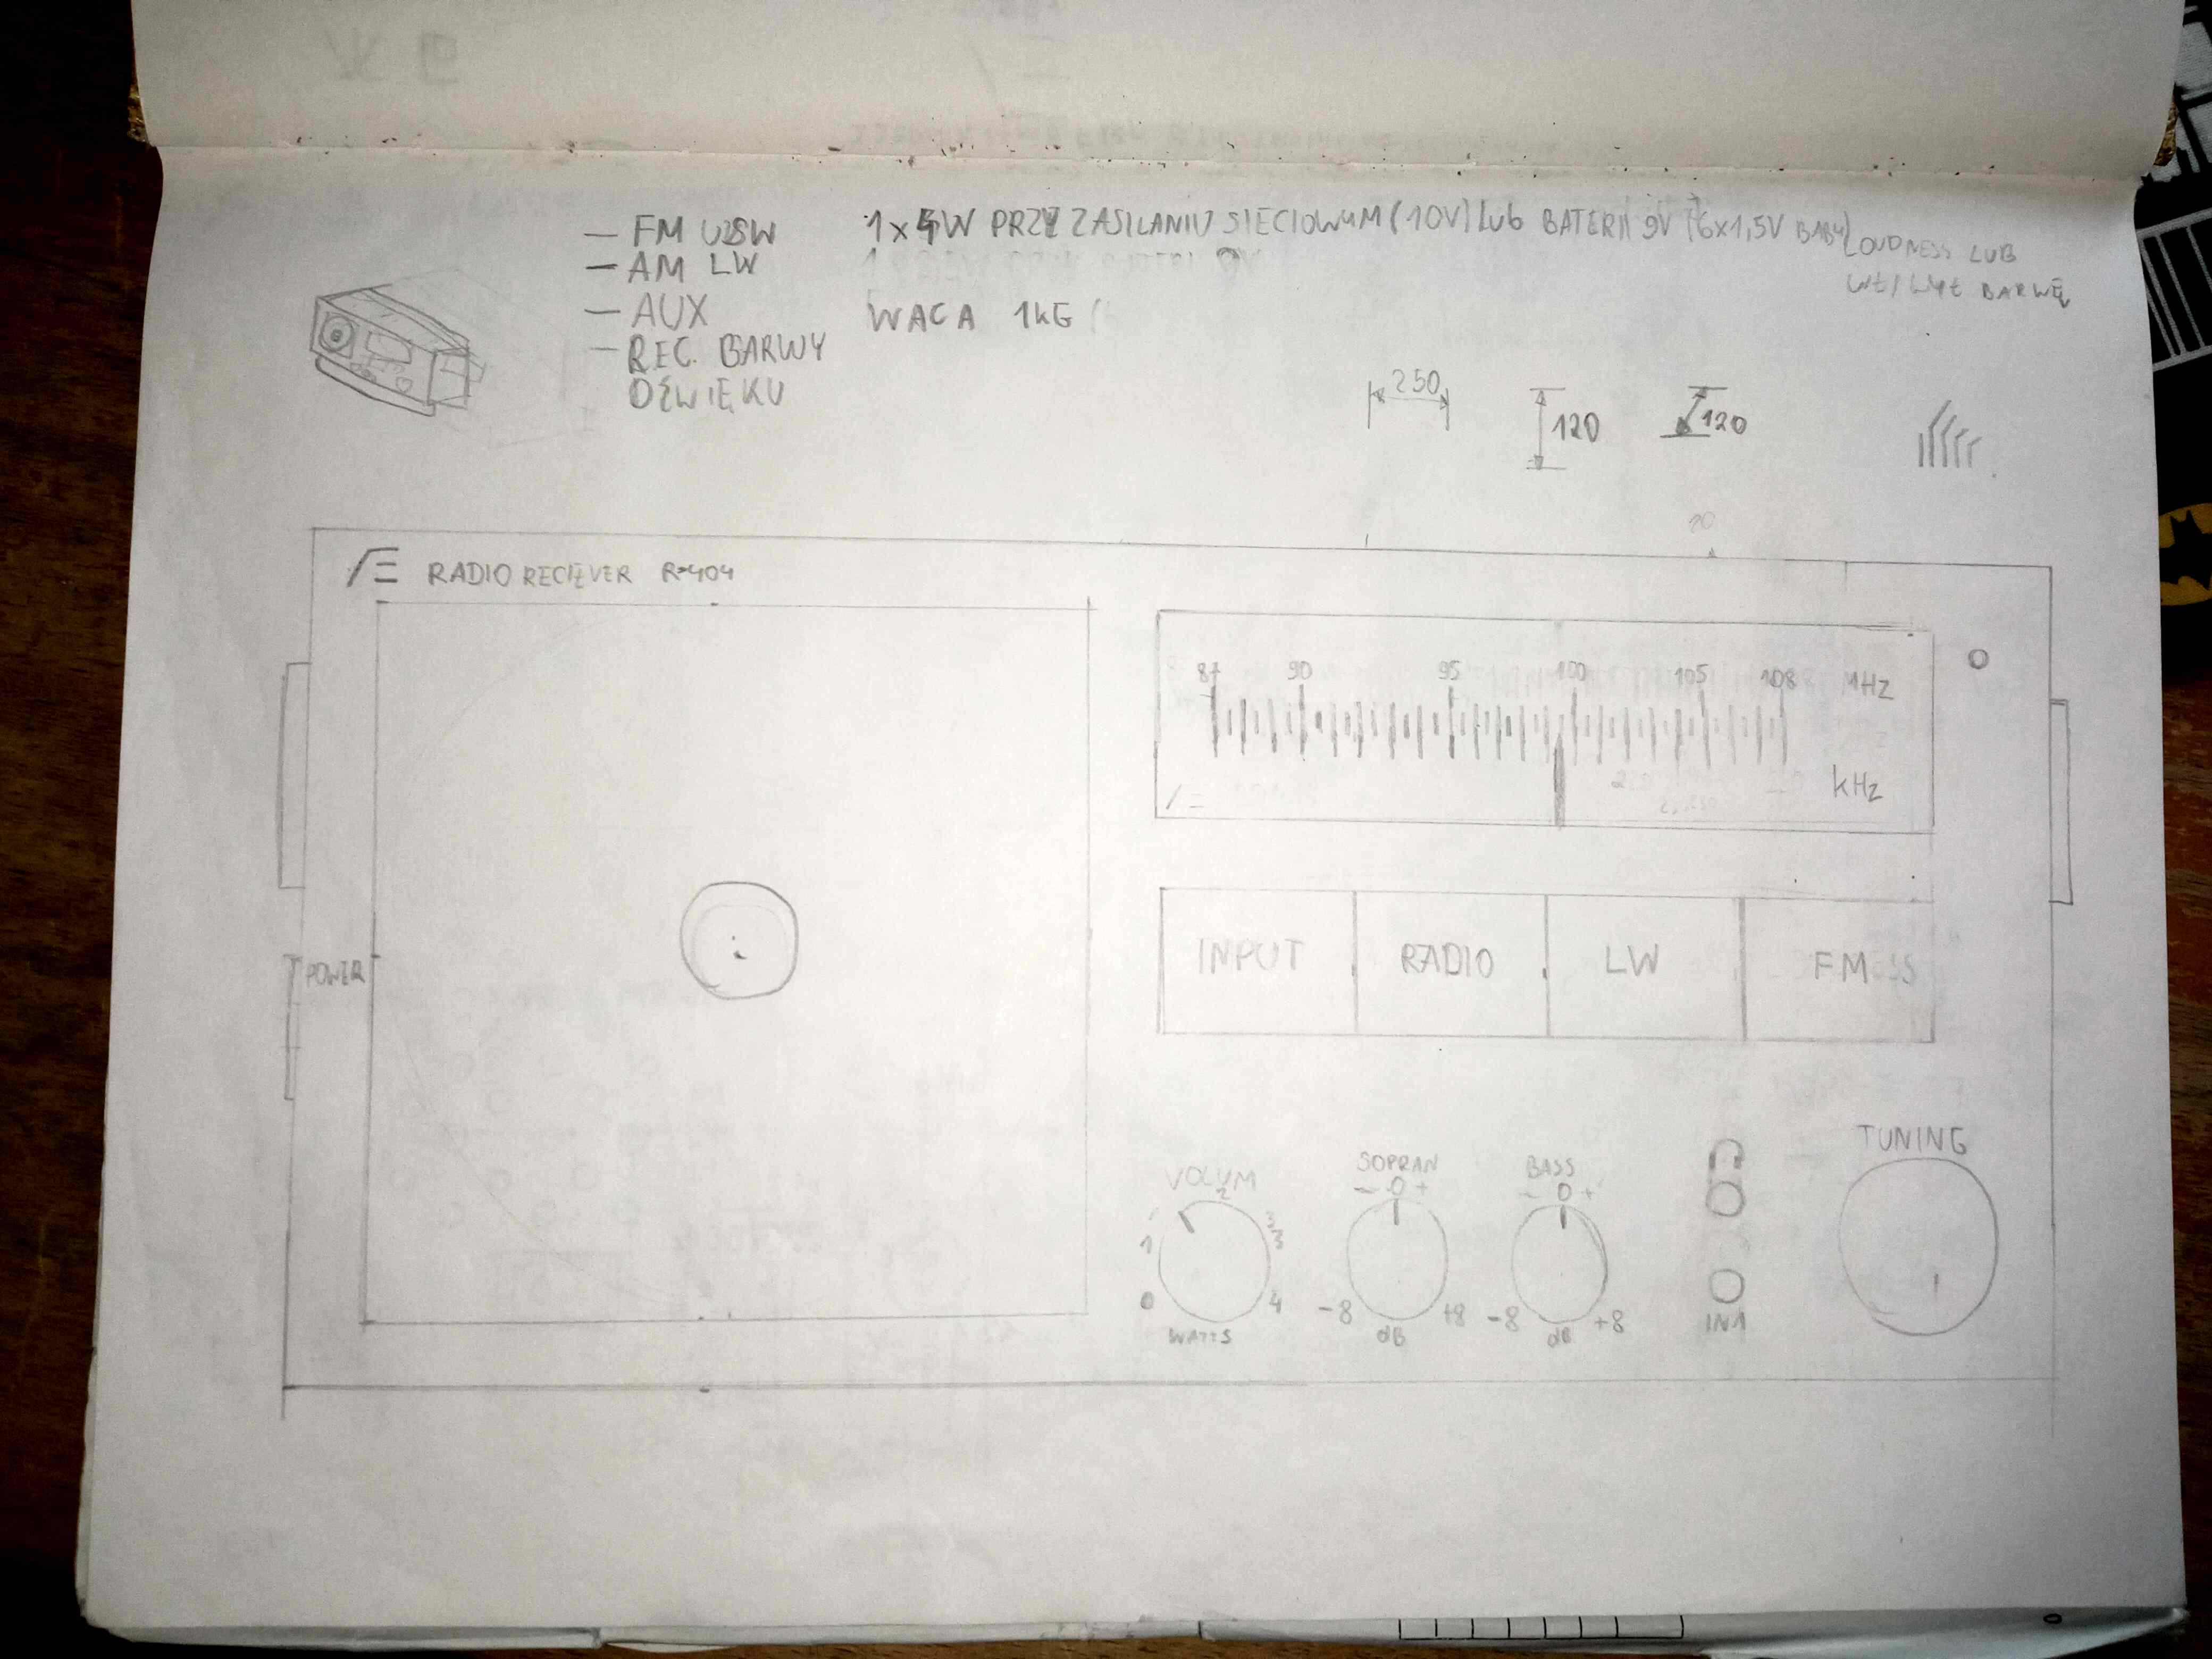 — FM
— AM LW
— AUX
— REG. BARWY
DŹWIĘKU
1x4W PRZY ZASILANIU SIECIOWYM (10V) LUB BATERII 9V (6x1,5V BABY)
WAGA 1KG
LOUDNESS LUB
WŁ/WYŁ BARWĘ
250
120
120
RADIO RECIEVER R-404
87 90 95 100 105 108 MHz
kHz
POWER
INPUT RADIO LW FM
VOLUM
0 1 2 3 4
WATTS
SOPRAN
- 0 +
-8 +8
dB
BASS
- 0 +
-8 +8
dB
IN1
TUNING